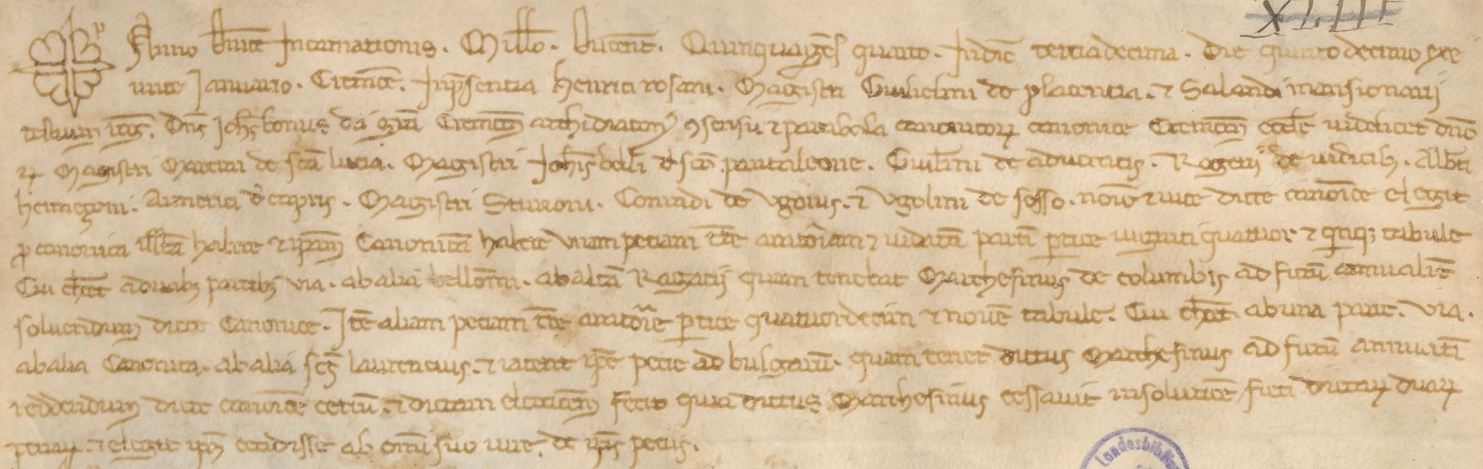 XLIII
Anno dnice Incarnationis. Millo. ducent. Quinquages quarto. Indic tertiadecima. Die quintodecimo exe
unte Januario. Cremone. Inpsentia henrici rosani. Magistri Guilielmi de placentia. et Salandi mansionarij
testium rog. Dns Johs bonus dei gra Cremon archidiaconus consensu et parabola canonicor canonice Cremon eccle videlicet dno
r Magistri Martini de sca lucia. Magistri Johis boni de sco pantaleone. Guilmi de advocatis. Rogerij de iudicib. Albti
hermizoni. Aimerici de capris. Magistri Sturioni. Conradi de Ugonis. et Ugolini de sesso. noie et vice dicte canonice elegit
p canonica illa habere et ipam Canonica habere unam peciam tre aratoriam et vidata parti ptice viginti quatuor et quinq tabule
Cui cheret aduabus partib via. ab alia bellom. ab alia Ragacij quam tenebat Marchesinus de columbis ad fictu annuali
solvendum dicte Canonice. Ite aliam peciam tre aratorie ptice quatuordecim et novem tabule. Cui cheret ab una parte. via.
ab alia Canonica. ab alia scs laurencius. et iacent ipe pecie ad bulgaru. quam tenet dictus Marchesinus ad fictu annuati
reddendum dicte canonice certum. et dictam electionem fecit quia dictus Marchesinus cessavit in solutione ficti dictar duar
peciar. et elegit ipm cecidisse ab omi suo iure. de ipis peciis.
Landesbiblio